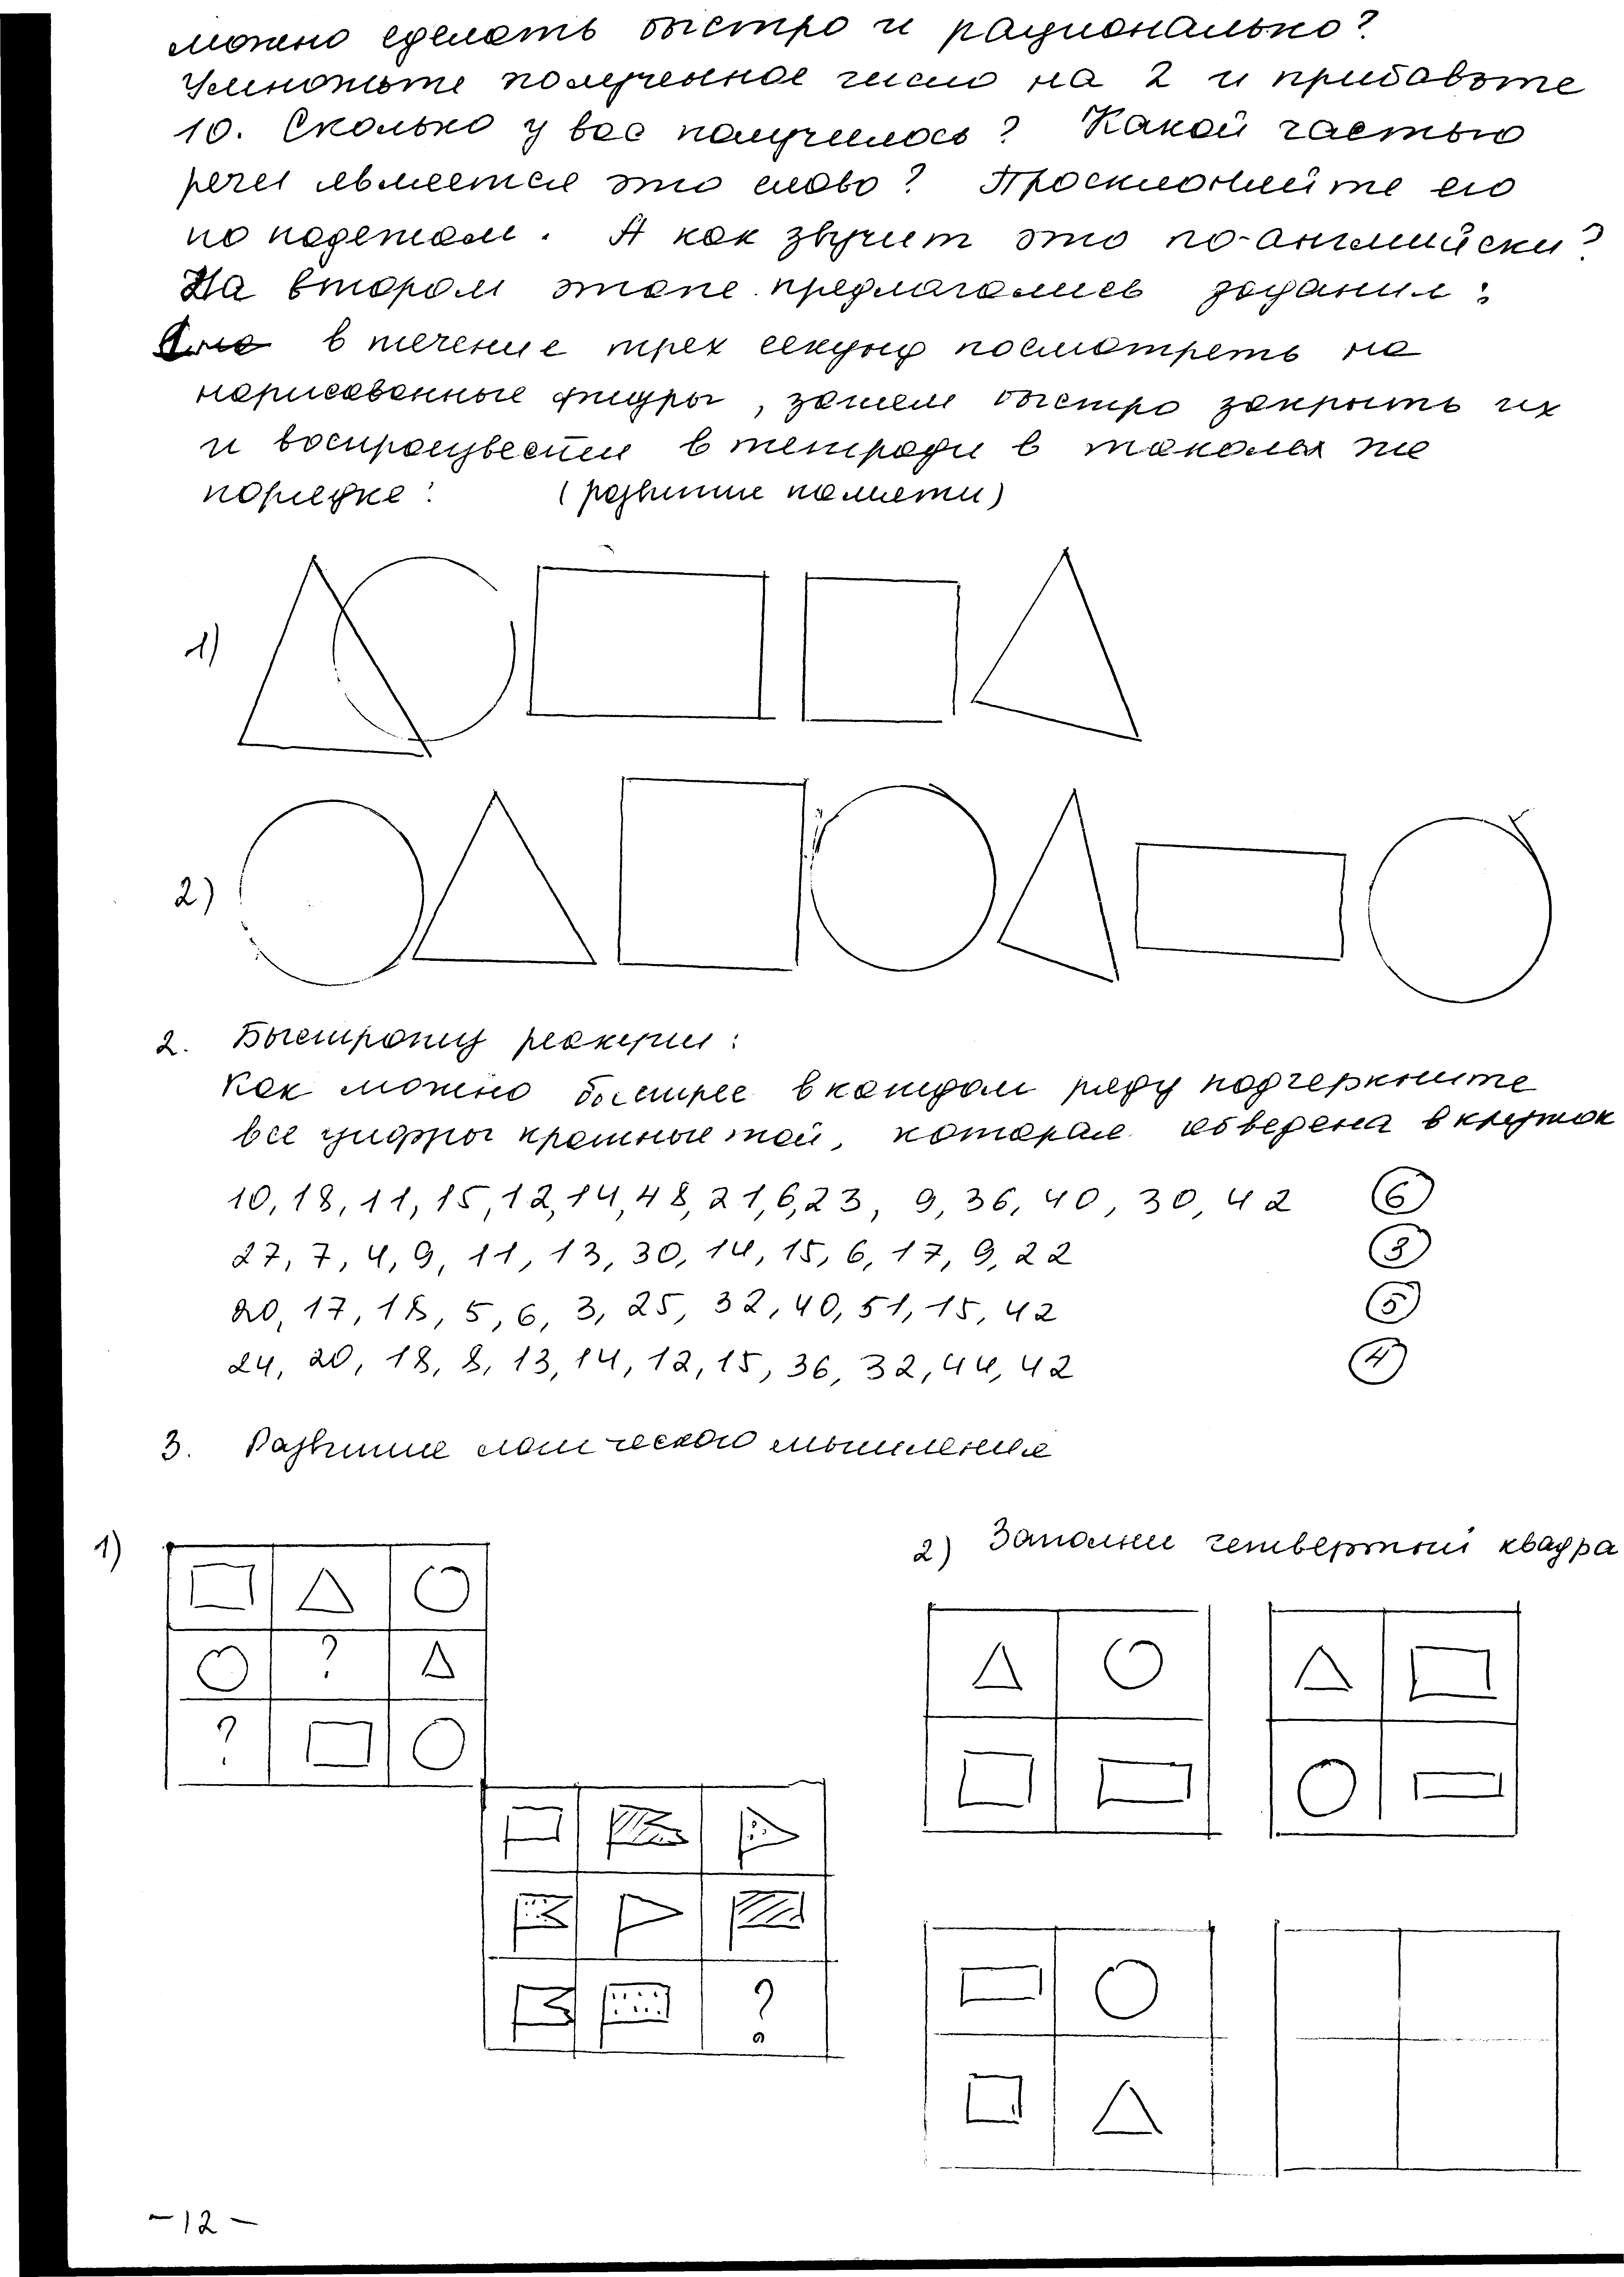 можно сделать быстро и рационально?
Умножьте полученное число на 2 и прибавьте
10. Сколько у вас получилось? Какой частью
речи является это слово? Просклоняйте его
по падежам. А как звучит это по-английски?
На втором этапе предлагались задания:
в течение трех секунд посмотреть на
нарисованные фигуры, затем быстро закрыть их
и воспроизвести в тетради в таком же
порядке: (развитие памяти)
1)
2)
2. Быстроту реакции:
Как можно быстрее в каждом ряду подчеркните
все цифры кратные той, которая обведена в кружок
10, 18, 11, 15, 12, 14, 48, 21, 6, 23, 9, 36, 40, 30, 42 6
27, 7, 4, 9, 11, 13, 30, 14, 15, 6, 17, 9, 22 3
20, 17, 18, 5, 6, 3, 25, 32, 40, 51, 15, 42 5
24, 20, 18, 8, 13, 14, 12, 15, 36, 32, 44, 42 4
3. Развитие логического мышления
1)
2) Заполни четвертый квадра
?
?
?
-12-